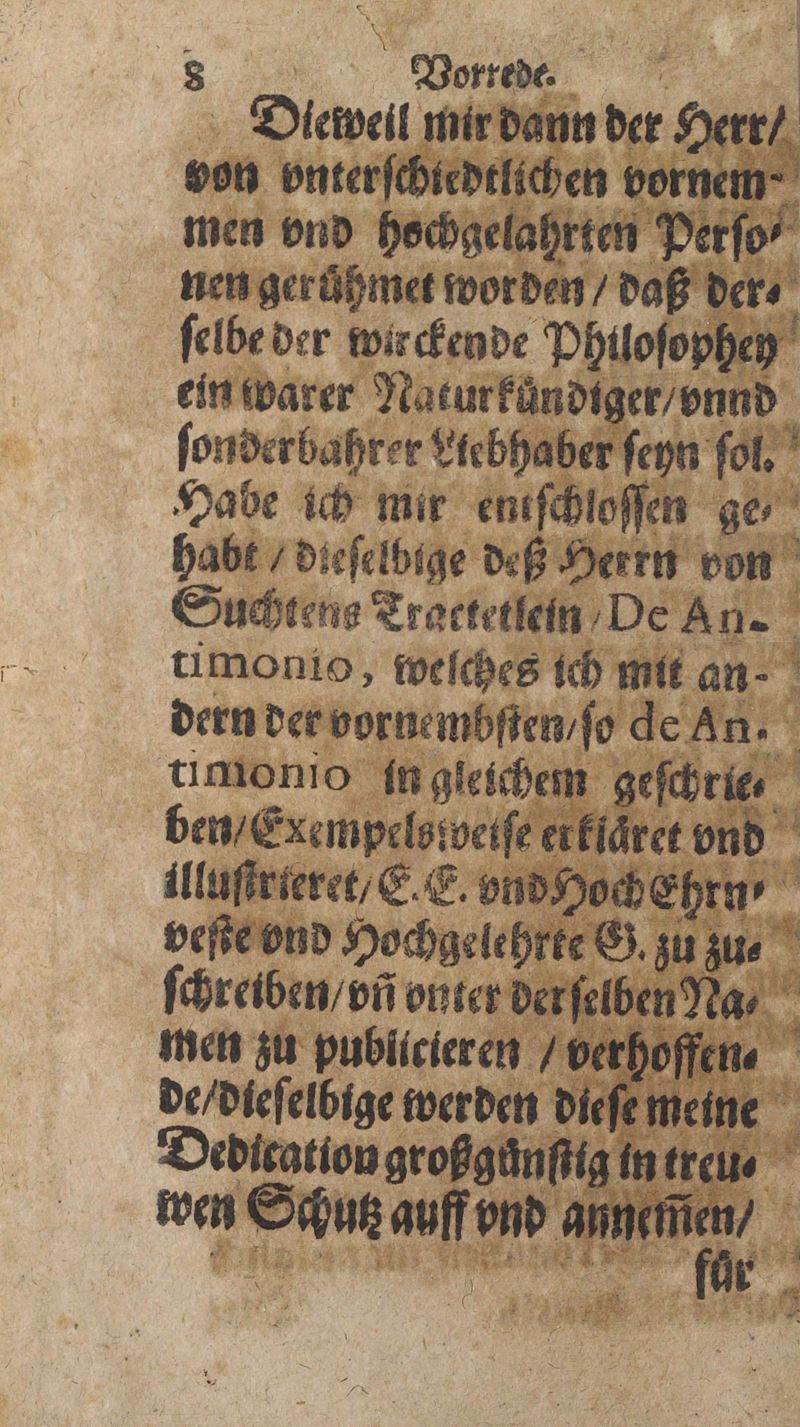 8 Vorrede.
Dieweil mir dann der Herr/
von vnterſchiedtlichen vornem-
men vnd hochgelahrten Perſo-
nen gerühmet worden / daß der-
ſelbe der wirckende Philoſophey
ein warer Naturkündiger/vnnd
ſonderbahrer Liebhaber ſeyn ſol.
Habe ich mir entſchloſſen ge-
habt / dieſelbige deß Herrn von
Suchtens Tractetlein / De An-
timonio, welches ich mit an-
dern der vornembſten/ſo de An-
timonio in gleichem geſchrie-
ben/Exempelsweiſe erkläret vnd
illuſtrieret/E. E. vnd Hoch Ehrn-
veſte vnd Hochgelehrte G. zu zu-
ſchreiben/vñ vnter derſelben Na-
men zu publicieren / verhoffen-
de/dieſelbige werden dieſe meine
Dedication großgünſtig in treu-
wen Schutz auff vnd annem̃en/
für